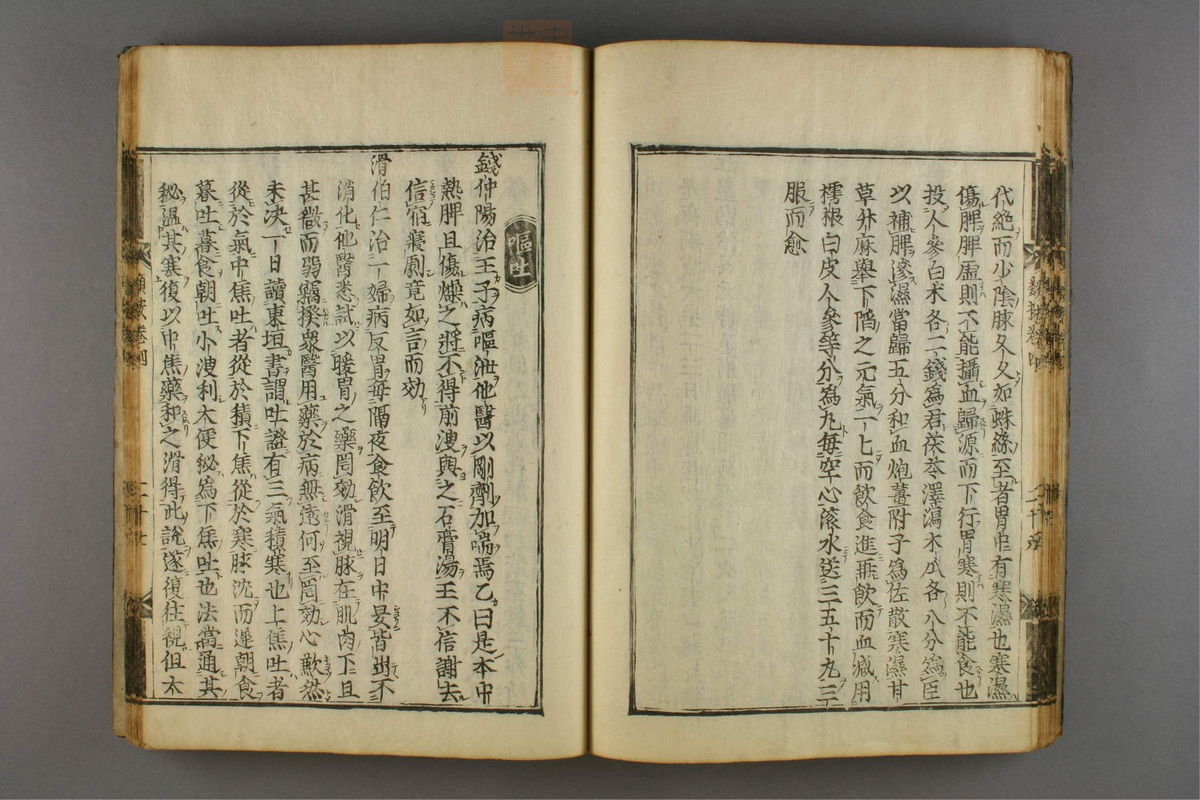 代絶而少陰脉久久如蛛絲至者胃中有寒濕也寒濕
傷脾脾虛則不能攝血歸源而下行胃寒則不能食也
投人參白术各二錢為君茯苓澤瀉木瓜各八分為臣
以補脾滲濕當歸五分和血炮薑附子為佐散寒濕甘
草升麻舉下陷之元氣一七而飲食進再飲而血減用
樗根白皮人參等分為丸每空心滾水送三五十丸三
服而愈
嘔吐
錢仲陽治王子病嘔泄他醫以剛劑加喘焉乙曰是本中
熱脾且傷燥之將不得前溲與之石膏湯王不信謝去
信宿寖劇竟如言而効
滑伯仁治一婦病反胃每隔夜食飲至明日中晏皆出不
消化他醫悉試以暖胃之藥罔効滑視脉在肌肉下且
甚微而弱竊揆衆醫用藥於病無遠何至罔効心歉然
未決一日讀東垣書謂吐證有三氣積寒也上焦吐者
從於氣中焦吐者從於積下焦從於寒脉沈而遲朝食
暮吐暮食朝吐小溲利大便秘為下焦吐也法當通其
秘溫其寒復以中焦藥和之滑得此説遂復往視但太